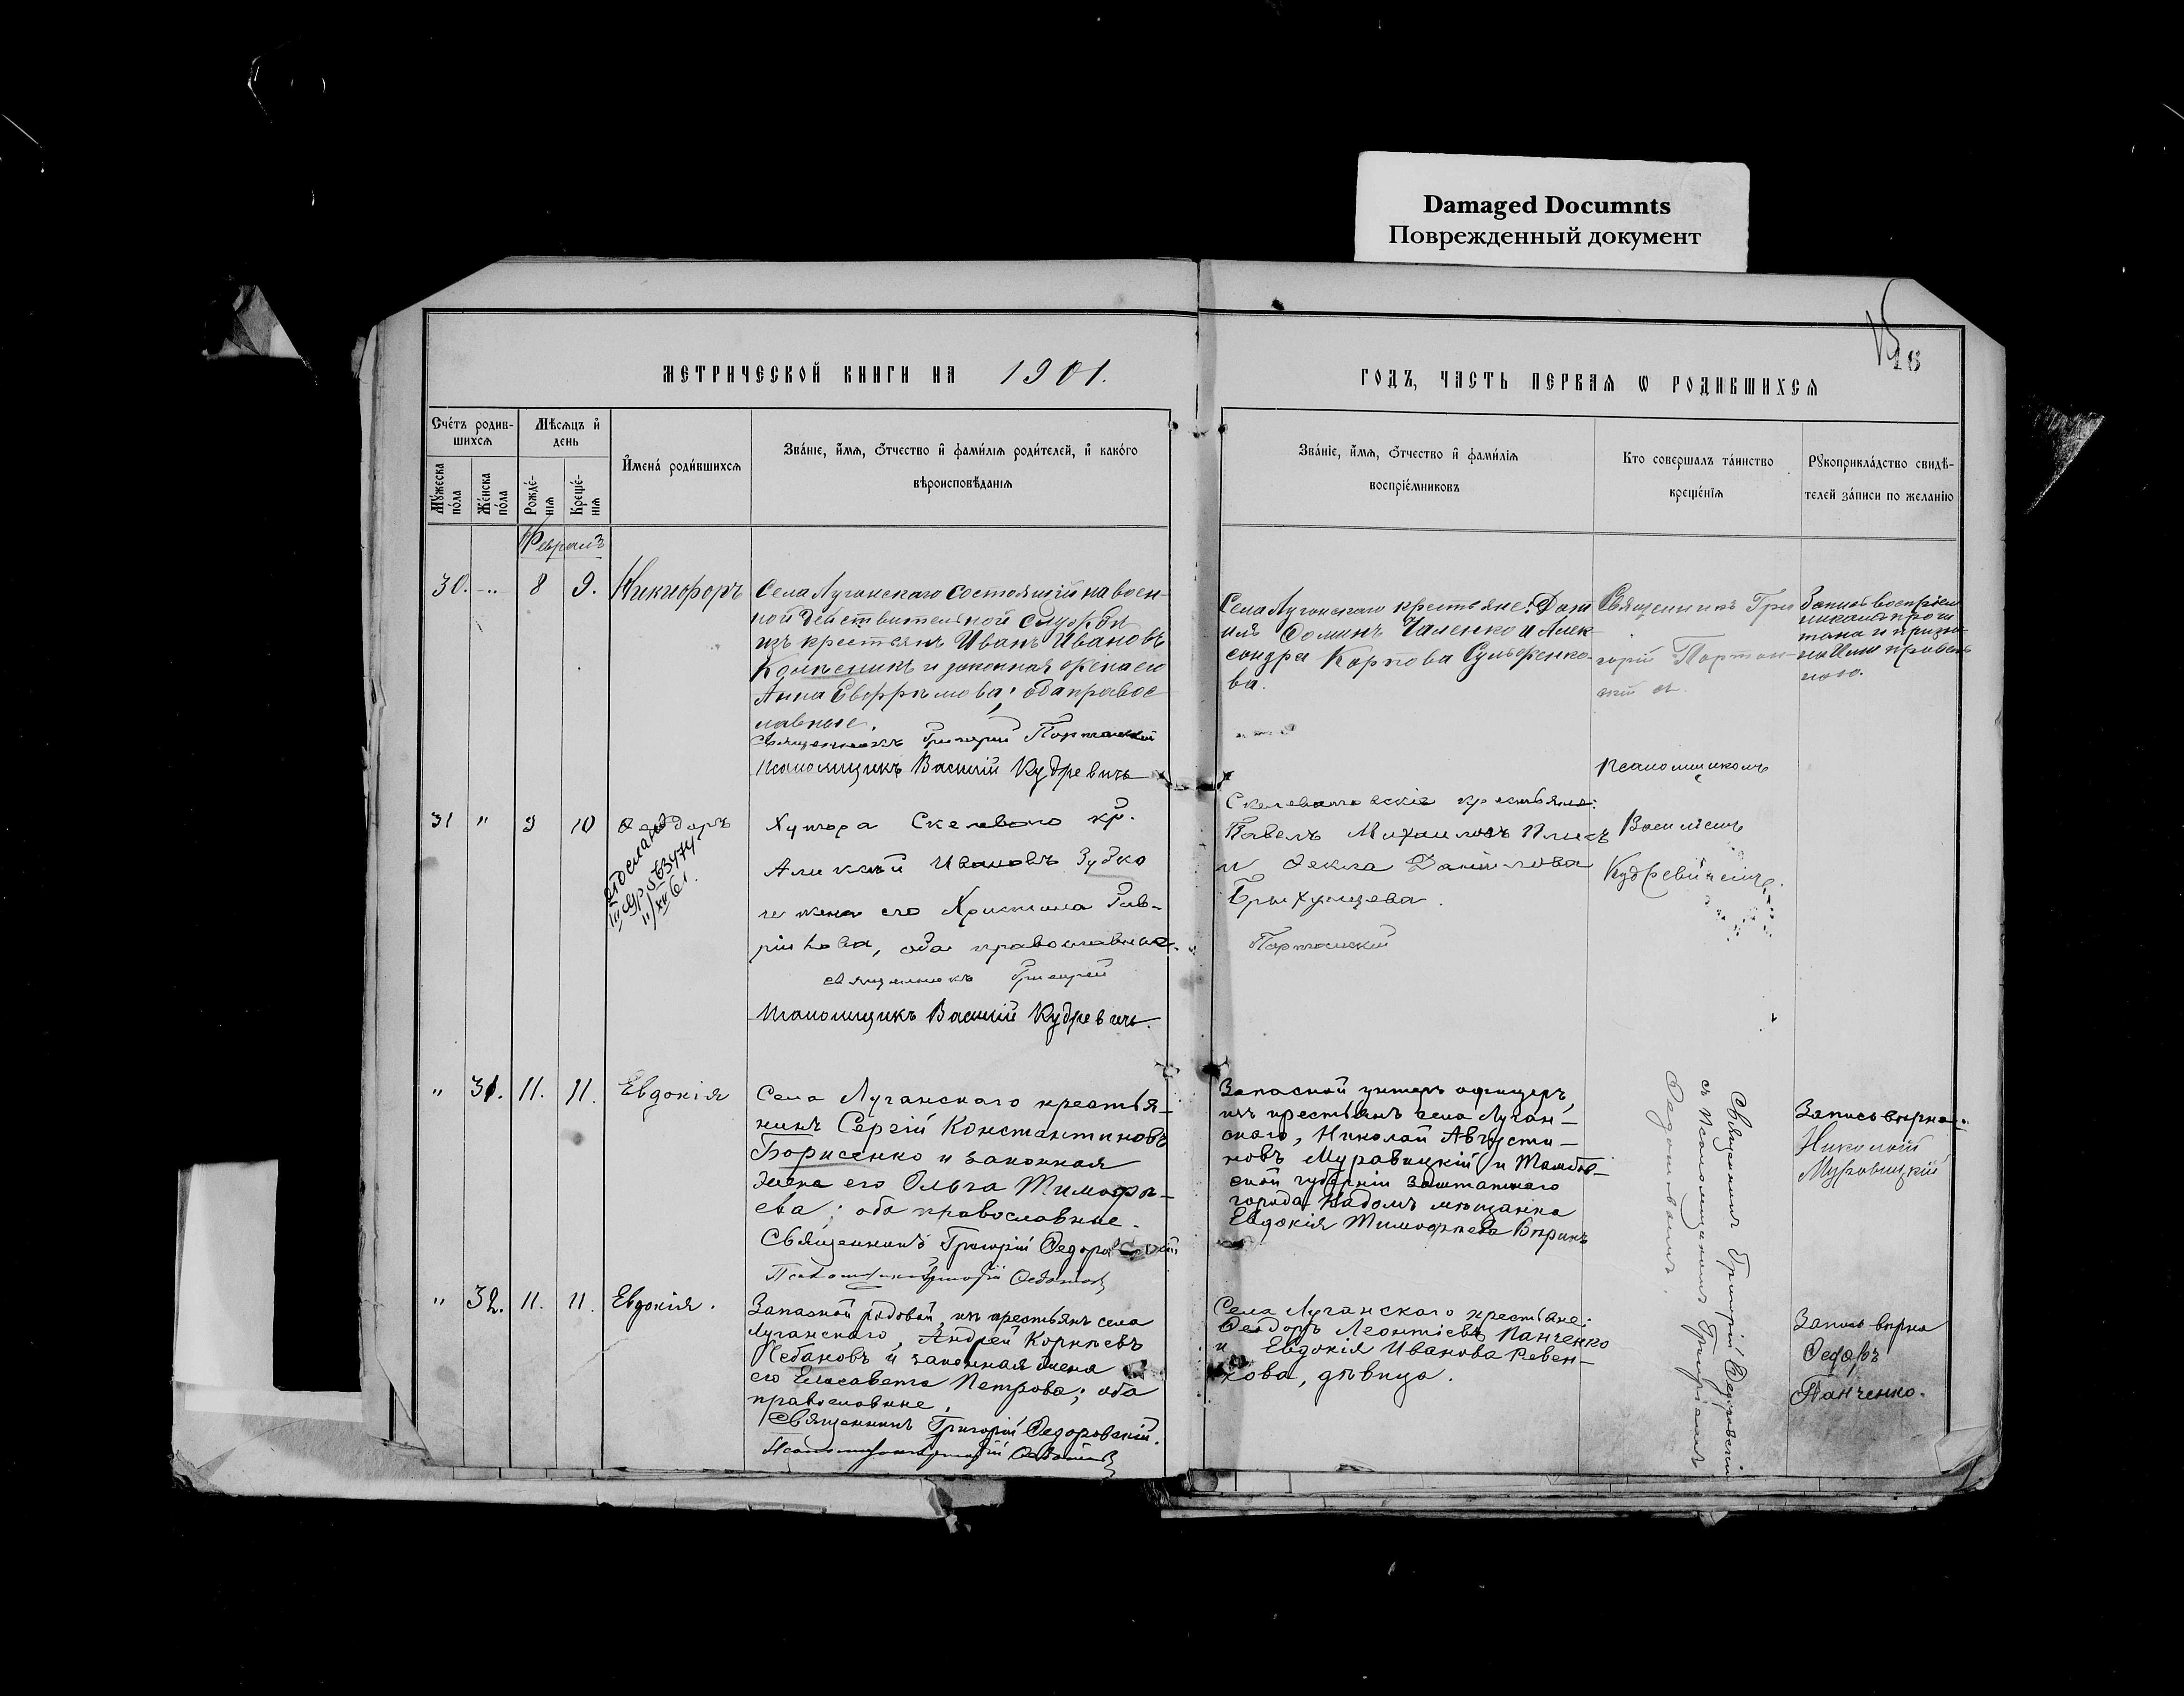 Damaged Documnts
Поврежденный документ
16
МЕТРИЧЕСКОЙ КНИГИ НА 1901.
ГОДЪ, ЧАСТЬ ПЕРВАѦ Ѡ РОДИВШИХСѦ
Счéтъ родив-
шихсѧ
Мѣсѧцъ и҆
день
Мꙋ́жеска
по́ла
Же́нска
по́ла
Рожде́-
нїѧ
Креще́-
нїѧ
И҆мена́ роди́вшихсѧ
Зва́нїе, и҆́мѧ, ѻ҆́тчество и҆ фами́лїѧ роди́телей, и҆ како́гѡ
вѣроисповѣ́данїѧ
Зва́нїе, и҆́мѧ, ѻ҆́тчество и҆ фами́лїѧ
воспрїе́мниковъ
Кто соверша́лъ та́инство
креще́нїѧ
Рꙋкоприкла́дство свидѣ́-
телей за́писи по жела́нїю
Февраль
30. " 8 9. Никифоръ
Села Луганскаго состоящій на воен-
ной действительной службѣ
изъ крестьянъ Иванъ Ивановъ
Колесникъ и законная жена его
Анна Ефимова; оба правос
лавные.
Священникъ Григорій Портанскій
Псаломщикъ Василій Кудревичъ
Села Луганскаго крестьяне: Дани
илъ Фоминъ Чаленко и Алек
сандра Карпова Сульженко-
ва.
Священникъ Гри
горій Портан-
скій съ
псаломщикомъ
Василіемъ
Кудревичемъ.
31 " 9 10 Феодоръ
отослано
III ЭР 563474
11/XII 61.
Хутора Скелеваго кр.
Алексѣй Ивановъ Зубко
и жена его Христина Гав-
ріилова, оба православные.
священникъ Григорій
Портанскій
Псаломщикъ Василій Кудревичъ.
Скелеватскіе крестьяне:
Павелъ Михаиловъ Плисъ
и Фекла Даніилова
" 31. 11. 11. Евдокія
Села Луганскаго крестья-
нинъ Сергій Константиновъ
Борисенко и законная
жена его Ольга Тимофѣ-
ева; оба православные.
Священникъ Григорій Федоровскій
Псаломщикъ Григорій
Запасной унтеръ офицеръ,
изъ крестьянъ села Луган-
скаго, Николай Августи-
новъ Муравицкій и Тамбов-
ской губерніи заштатнаго
города Кадомъ мѣщанка
Евдокія Тимофѣева
Священникъ Григорій Федоровскій
съ Псаломщикомъ Григоріемъ
Запись вѣрна:
Николай
Муравицкій
" 32. 11. 11. Евдокія.
Запасной рядовой, изъ крестьянъ села
Луганскаго, Андрей Корнѣевъ
Чебановъ и законная жена
его Елисавета Петрова; оба
православные.
Священникъ Григорій Федоровскій.
Псаломщикъ Григорій
Села Луганскаго крестьяне:
Феодоръ Леонтіевъ Панченко
и Евдокія Иванова Ревен-
кова, дѣвица.
Запись вѣрна
Федоръ
Панченко.